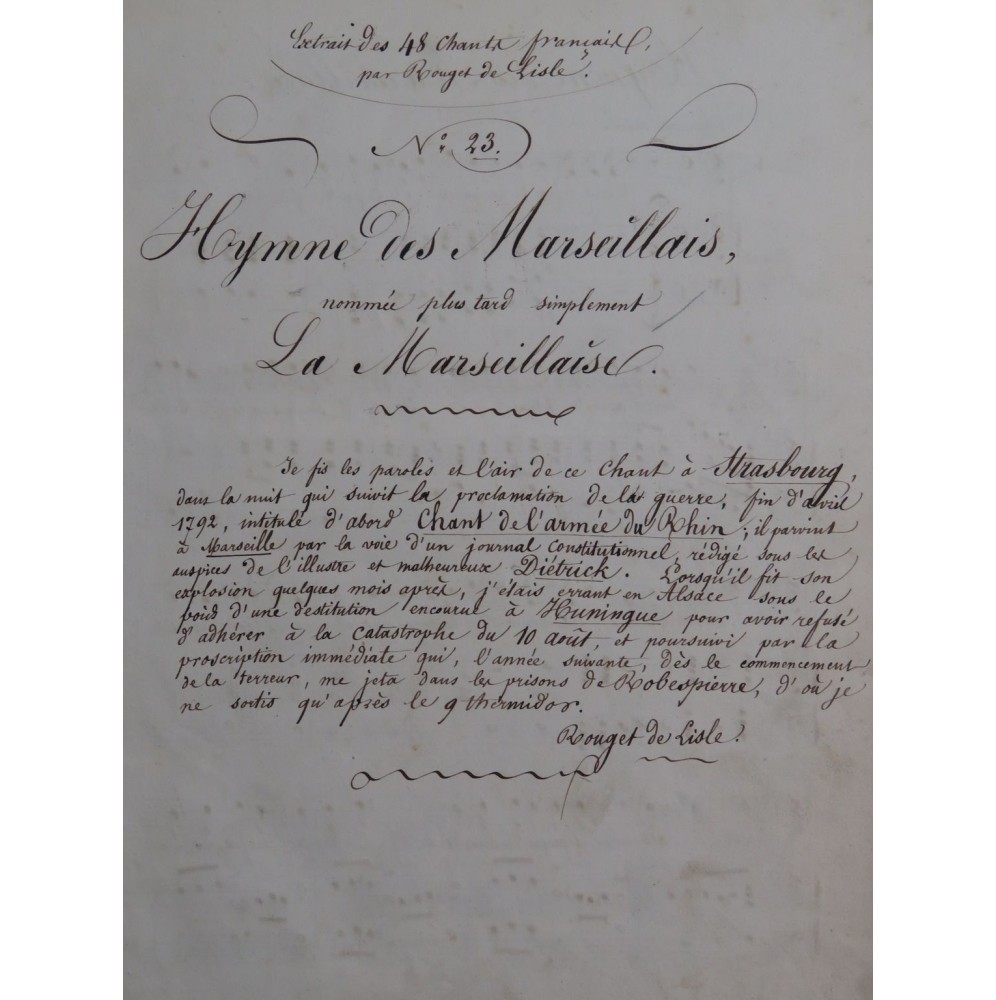 Extrait des 48 Chants français,
par Rouget de Lisle.
No. 23.
Hymne des Marseillais,
nommée plus tard simplement
La Marseillaise.
Je fis les paroles et l'air de ce Chant à Strasbourg,
dans la nuit qui suivit la proclamation de la guerre, fin d'avril
1792, intitulé d'abord Chant de l'armée du Rhin; il parvint
à Marseille par la voie d'un journal constitutionnel, rédigé sous les
auspices de l'illustre et malheureux Diétrick. Lorsqu'il fit son
explosion quelques mois après, j'étais errant en Alsace sous le
poid d'une destitution encourue à Huningue pour avoir refusé
d'adhérer à la Catastrophe du 10 août, et poursuivi par la
proscription immédiate qui, l'année suivante, dès le commencement
de la terreur, me jeta dans les prisons de Robespierre, d'où je
ne sortis qu'après le 9 thermidor.
Rouget de Lisle.